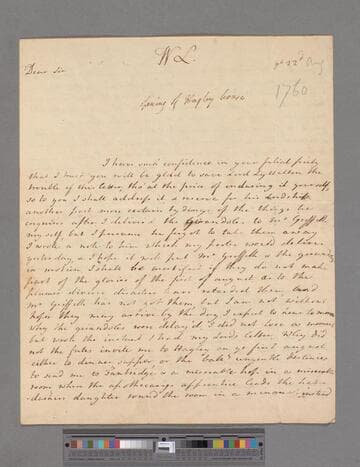 W L.
ye 22d Aug
1760
Dear Sir
opening of Hagley house
I have such confidence in your filial piety
that I trust you will be glad to save Lord Lyttelton the
trouble of this letter, tho' at the price of enduring it yourself
so to you I shall address it & reserve for his Lordship
another post more certain tydings of the things he
enquires after. I deliver'd the Girandoles to Mr Griffith
my self but I presume he forgot to take them away
I wrote a note to him which my porter would deliver
yesterday & I hope it will put Mr Griffith & the
in motion. I shall be mortified if they do not make
part of the glories of the fest of august as to the
Mr Griffith has not got them but I am not without
hopes they may arrive by the day I expect to hear to morrow
why the girandoles were delay'd. I did not lose a moment
but wrote the instant I had my Lords letter. Why did
not the fates invite me to Hagley on ye first august
either to dinner supper or the ball ungentle Destinies
to send me to Tunbridge to a miserable hop in a miserable
room when the apothecarys apprentice leads the
daughter round the room in a minuet, instead